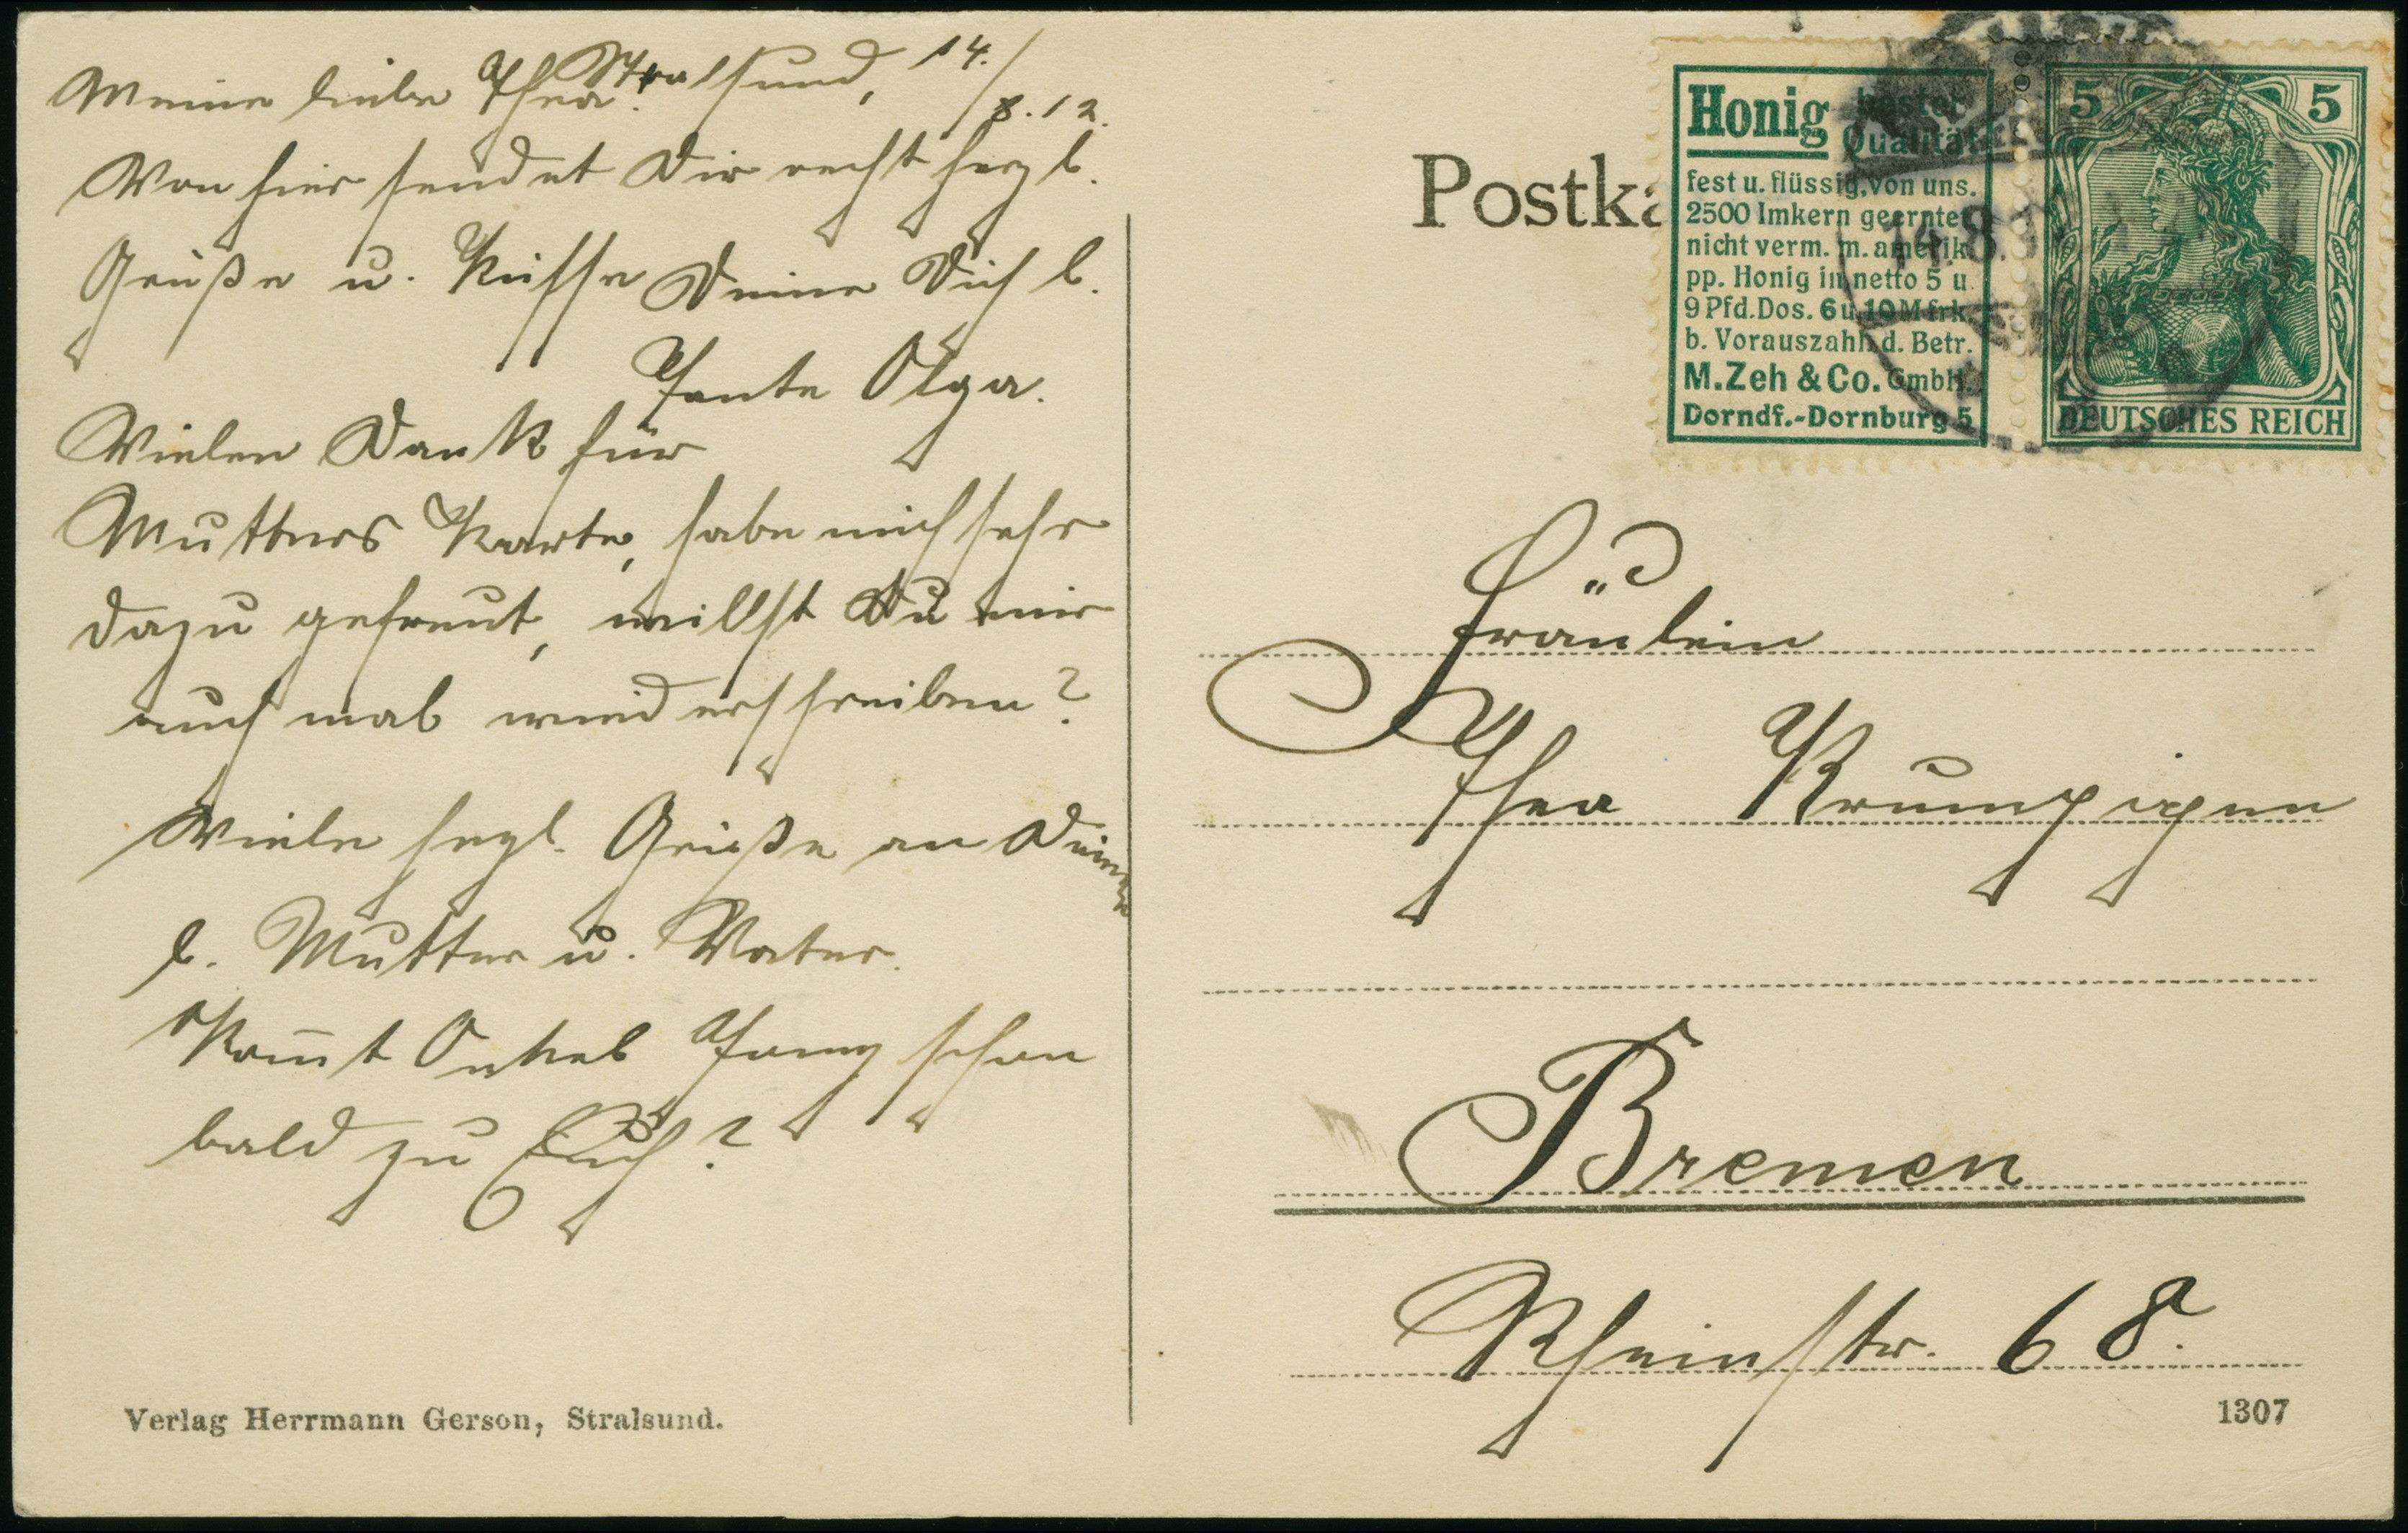 Stralsund, 14./8.12.
Meine liebe Thea!
Von hier sendet Dir recht herzl.
Grüße u. Küsse Deine Dich l.
Tante Olga.
Vielen Dank für
Mutters Karte, habe mich sehr
dazu gefreut, willst Du mir
auch mal wiederschreiben?
Viele herzl. Grüße an Deine
l. Mutter u. Vater.
Kom̅t Onkel schon
bald zu Euch?
Verlag Herrmann Gerson, Stralsund.
Postka
Honig bester
Qualität
fest u. flüssig, von uns.
2500 Imkern geerntet
nicht verm. m. amerik.
pp. Honig in netto 5 u.
9 Pfd. Dos. 6 u. 10 M frk.
b. Vorauszahl. d. Betr.
M. Zeh & Co. GmbH.
Dorndf.-Dornburg 5
5 5
DEUTSCHES REICH
14.8.
Fräulein
Thea
Bremen
Rheinstr. 68.
1307